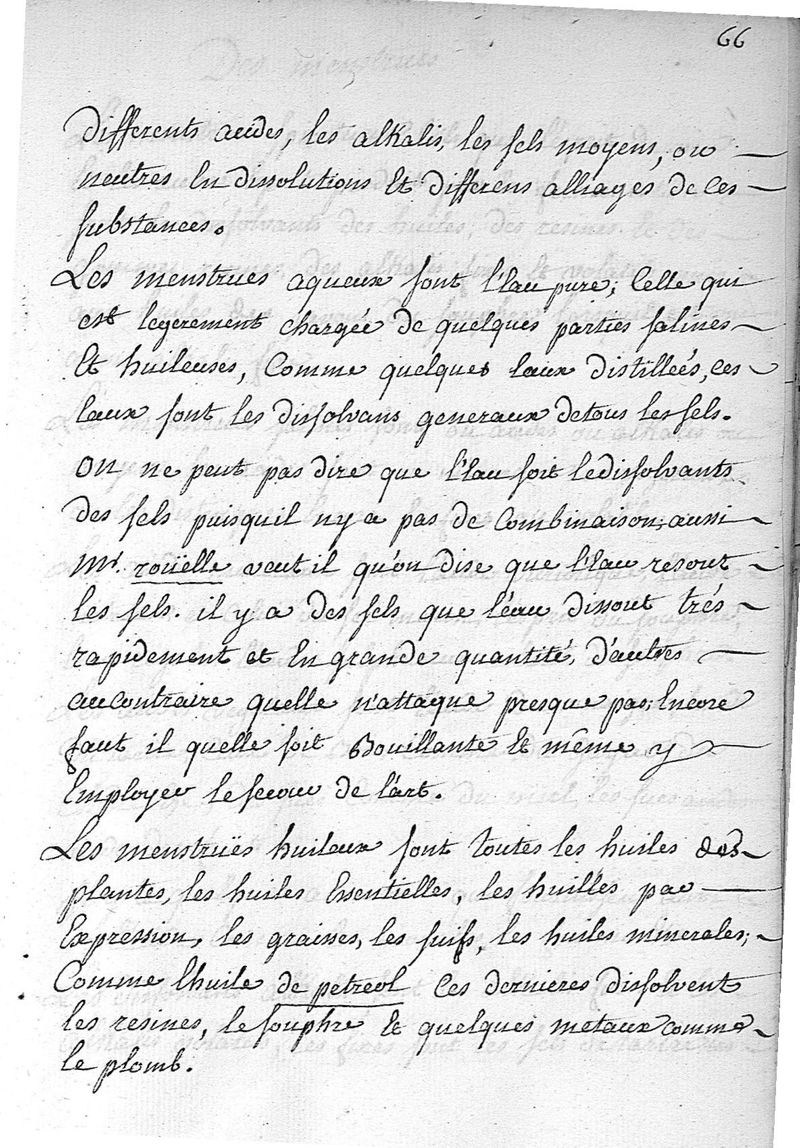 66
differents acides, les alkalis, les sels moyens, ou
neutres En dissolutions Et differens alliages de Ces
substances.
Les menstrues aqueux sont l'Eau pure; Celle qui
est legerement chargée de quelques parties salines
Et huileuses, Comme quelques Eaux distilleés, Ces
Eaux sont les dissolvans generaux detous les sels.
on ne peut pas dire que l'Eau soit le dissolvants
des sels puisquil ny a pas de Combinaison, aussi
Mr. roüelle veut il qu'on dise que l'Eau resout
les sels. il y a des sels que l'éau dissout trés
rapidement et En grande quantité, d'autres
aucontraire quelle n'attaque presque pas, Encore
faut il quelle soit Bouillante Et même y
Employer le secour de l'art.
Les menstruës huileux sont toutes les huiles des
plantes, les huiles Essentielles, les huilles par
Expression, les graisses, les suifs, les huiles minerales;
Comme lhuile de petreol Ces dernieres dissolvent
les resines, le souphre Et quelques metaux comme
le plomb.